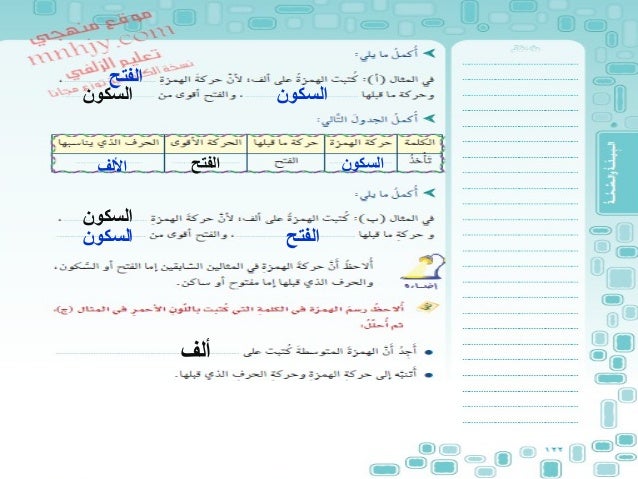 موقع منهجي
mnhjy.com
تعليم الزلفي
أكملُ ما يلي:
في المثال (أ): كُتبت الهمزةُ على ألف، لأنّ حركةَ الهمزةِ الفتح .
وحركة ما قبلها السكون . والفتح أقوى من السكون
أكملُ الجدولَ التَّالي:
الكلمة حركة الهمزة حركة ما قبلها الحركة الأقوى الحرف الذي يناسبها
تَأْخذُ السكون الفتح الفتح الألف
أكملُ ما يلي:
في المثال (ب): كُتبت الهمزةُ على ألف، لأنّ حركةَ الهمزةِ السكون .
وحركةِ ما قبلها الفتح . والفتح أقوى من السكون
ألاحظُ أنَّ حركةَ الهمزةِ في المثالين السَّابقين إما الفتح أو السُّكون،
والحرف الذي قبلها إما مفتوح أو ساكن.
إضاءة
ألاحظُ رسمَ الهمزة في الكلمةِ التي كُتبت باللَّونِ الأحمرِ في المثال (ج)،
ثم أحلّلُ:
أجِدُ أنَّ الهمزةَ المتوسطةَ كُتبت على ألف
أتنبّه إلى حركةِ الهمزةِ وحركةِ الحرفِ الذي قبلها.
١٢٢